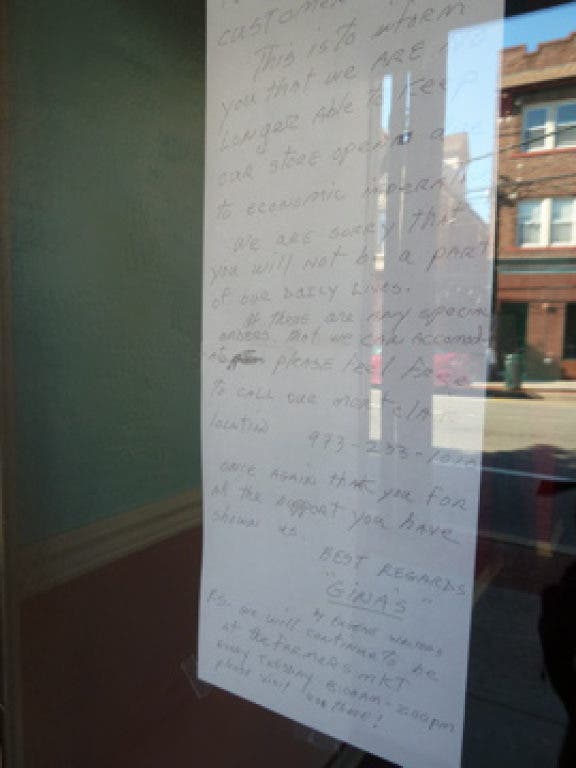 customer
This is to inform
you that we ARE no
Longer Able to keep
our store open due
to economic
We are sorry that
you will not be a part
of our Daily Lives.
If there are any special
orders that we can Accomodate
please feel free
To call our montclair
location 973-233-
once again thank you for
all the support you have
shown us.
BEST REGARDS
"GINA'S"
by
P.S. we will continue to be
at the Farmers mkt
every Tuesday 8:00Am - 2:00pm
please visit us there!